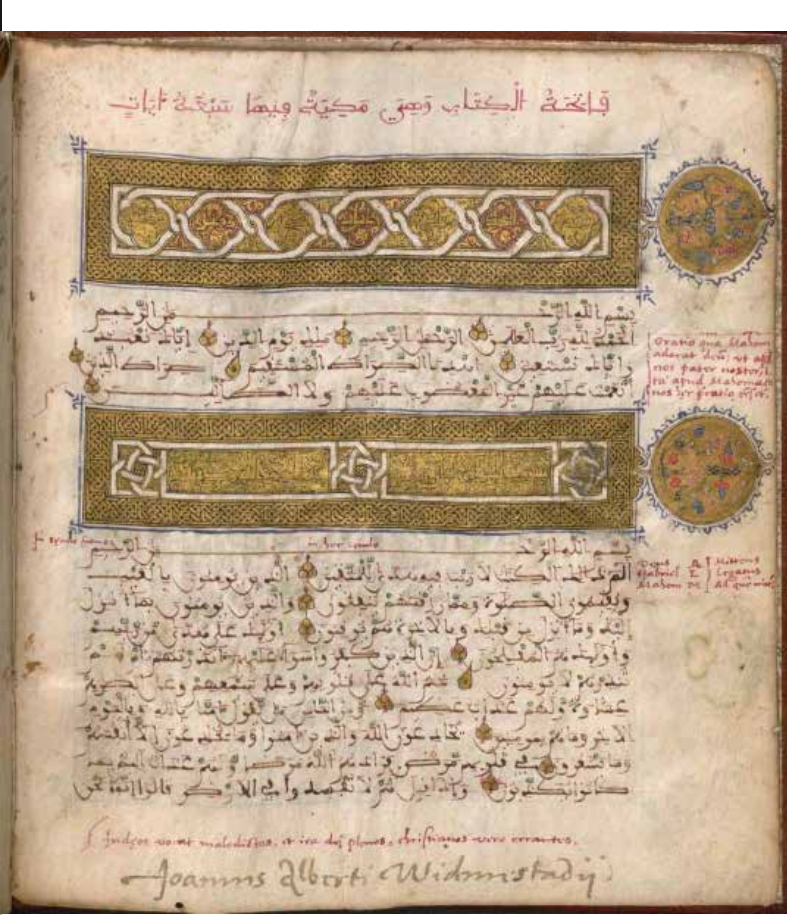 فَاتِحَةُ الْكِتَابِ وَهِيَ مَكِيَّةٌ فِيهَا سَبْعَةُ ايَاتٍ
بسم الله الرحمن الرحيم
الحمد لله رب العلمين الرحمن الرحيم ملك يوم الدين اياك نعبد
واياك نستعين اهدنا الصراط المستقيم صراط الذين
انعمت عليهم غير المغضوب عليهم ولا الضالين
Oratio qua Mahom
aderat deū, ut apd
nos pater noster, i
apud Mahometa
nos
بسم الله الرحمن الرحيم
الم ذلك الكتب لا ريب فيه هدى للمتقين الذين يومنون بالغيب
ويقيمون الصلوة ومما رزقنهم ينفقون والذين يومنون بما انزل
اليك وما انزل من قبلك وبالاخرة هم يوقنون اوليك على هدى من ربهم
واوليك هم المفلحون ان الذين كفروا سواء عليهم ءانذرتهم ام لم
تنذرهم لا يومنون ختم الله على قلوبهم وعلى سمعهم وعلى ابصرهم
غشوة ولهم عذاب عظيم ومن الناس من يقول امنا بالله وباليوم
الاخر وما هم بمومنين يخدعون الله والذين امنوا وما يخدعون الا انفسهم
وما يشعرون في قلوبهم مرض فزادهم الله مرضا ولهم عذاب اليم بما
كانوا يكذبون واذا قيل لهم لا تفسدوا في الارض قالوا انما نحن
Deus A Mittens
Gabriel L Legatus
Mahom M Ad quē
Judeos vocat maledictos, et ira dei plenos, christianos vero errantes.
Joannis Alberti Widmestadij